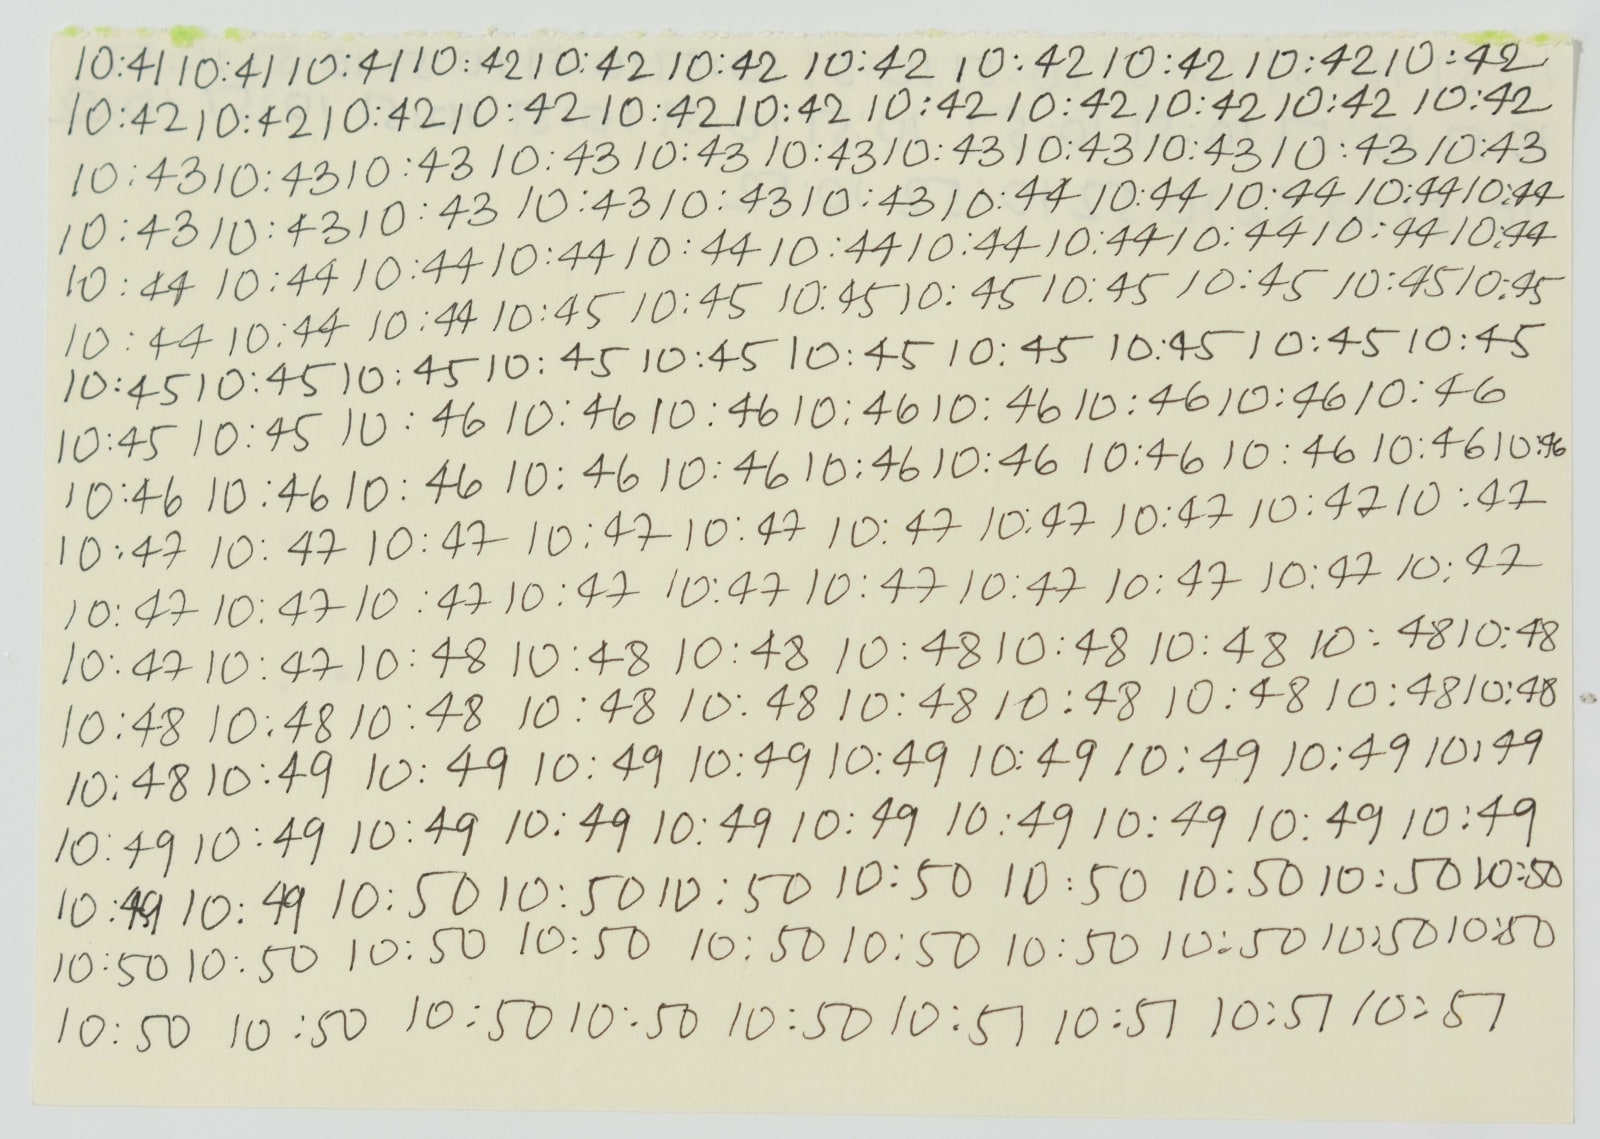 10:41 10:41 10:41 10:42 10:42 10:42 10:42 10:42 10:42 10:42 10:42
10:42 10:42 10:42 10:42 10:42 10:42 10:42 10:42 10:42 10:42 10:42
10:43 10:43 10:43 10:43 10:43 10:43 10:43 10:43 10:43 10:43 10:43
10:43 10:43 10:43 10:43 10:43 10:43 10:44 10:44 10:44 10:44 10:44
10:44 10:44 10:44 10:44 10:44 10:44 10:44 10:44 10:44 10:44 10:44
10:44 10:44 10:44 10:45 10:45 10:45 10:45 10:45 10:45 10:45 10:45
10:45 10:45 10:45 10:45 10:45 10:45 10:45 10:45 10:45 10:45
10:45 10:45 10:46 10:46 10:46 10:46 10:46 10:46 10:46 10:46
10:46 10:46 10:46 10:46 10:46 10:46 10:46 10:46 10:46 10:46 10:46
10:47 10:47 10:47 10:47 10:47 10:47 10:47 10:47 10:47 10:47
10:47 10:47 10:47 10:47 10:47 10:47 10:47 10:47 10:47 10:47
10:47 10:47 10:48 10:48 10:48 10:48 10:48 10:48 10:48 10:48
10:48 10:48 10:48 10:48 10:48 10:48 10:48 10:48 10:48 10:48
10:48 10:49 10:49 10:49 10:49 10:49 10:49 10:49 10:49 10:49
10:49 10:49 10:49 10:49 10:49 10:49 10:49 10:49 10:49 10:49
10:49 10:49 10:50 10:50 10:50 10:50 10:50 10:50 10:50 10:50
10:50 10:50 10:50 10:50 10:50 10:50 10:50 10:50 10:50 10:50
10:50 10:50 10:50 10:50 10:50 10:51 10:51 10:51 10:51